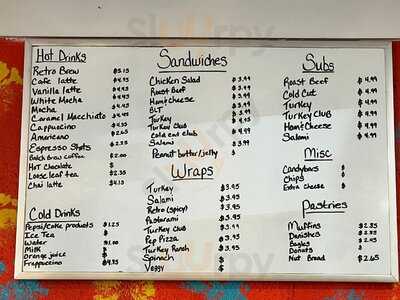 Hot Drinks
Retro Brew $5.15
Cafe latte $4.95
Vanilla latte $4.45
White Mocha $4.45
Mocha $4.45
Caramel Macchiato $4.45
Cappuccino $4.35
Americano $2.65
Espresso Shots $2.35
Batch Brew Coffee $2.00
Hot Chocolate $
Loose leaf tea $2.35
Chai latte $4.15
Cold Drinks
Pepsi/Coke products $1.25
Ice Tea $
Water $1.00
Milk $
Orange juice $
Frappuccino $4.35
Sandwiches
Chicken Salad $3.99
Roast Beef $3.99
Ham & cheese $3.99
BLT
Turkey $
Turkey Club $3.99
Cold cut club $4.99
Salami $3.99
Peanut butter/jelly $
Wraps
Turkey $3.95
Salami $3.95
Retro (spicy) $3.95
Pastarami $3.95
Turkey Club $3.99
Pep Pizza $3.95
Turkey Ranch $3.95
Spinach $
Veggy $
Subs
Roast Beef $4.99
Cold Cut $4.99
Turkey $4.99
Turkey CLUB $4.99
Ham & Cheese $4.99
Salami $4.99
Misc
Candybars $
Chips $
Extra Cheese $
Pastries
Muffins $2.35
Danishes $2.35
Bagles $2.65
Donuts $
Nut Bread $2.65